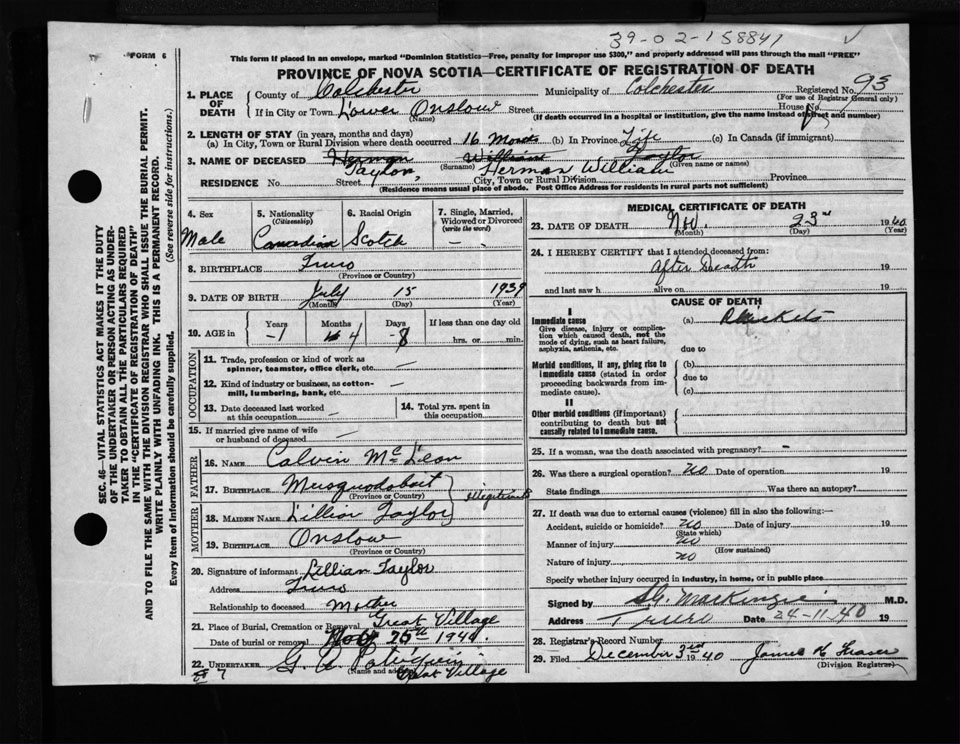 39-02-158841
FORM 6
This form if placed in an envelope, marked "Dominion Statistics—Free, penalty for improper use $300," and properly addressed will pass through the mail "FREE"
PROVINCE OF NOVA SCOTIA—CERTIFICATE OF REGISTRATION OF DEATH
1. PLACE OF DEATH
County of Colchester Municipality of Colchester Registered No. 93
(For use of Registrar General only)
If in City or Town Lower Onslow Street House No.
(Name) (If death occurred in a hospital or institution, give the name instead of street and number)
2. LENGTH OF STAY (in years, months and days)
(a) In City, Town or Rural Division where death occurred 16 Months (b) In Province Life (c) In Canada (if immigrant)
3. NAME OF DECEASED Herman William Taylor
Taylor, Herman William
(Surname) (Given name or names)
RESIDENCE No. Street City, Town or Rural Division Province
(Residence means usual place of abode. Post Office Address for residents in rural parts not sufficient)
SEC. 46—VITAL STATISTICS ACT MAKES IT THE DUTY
OF THE UNDERTAKER OR PERSON ACTING AS UNDER-
TAKER TO OBTAIN ALL THE PARTICULARS REQUIRED
IN THE "CERTIFICATE OF REGISTRATION OF DEATH"
AND TO FILE THE SAME WITH THE DIVISION REGISTRAR WHO SHALL ISSUE THE BURIAL PERMIT.
WRITE PLAINLY WITH UNFADING INK. THIS IS A PERMANENT RECORD.
Every item of information should be carefully supplied. (See reverse side for instructions.)
4. Sex
Male
5. Nationality
(Citizenship)
Canadian
6. Racial Origin
Scotch
7. Single, Married, Widowed or Divorced
(write the word)
8. BIRTHPLACE Truro
(Province or Country)
9. DATE OF BIRTH July 15 1939
(Month) (Day) (Year)
10. AGE in Years Months Days If less than one day old
1 4 8 hrs. or min.
OCCUPATION
11. Trade, profession or kind of work as
spinner, teamster, office clerk, etc.
12. Kind of industry or business, as cotton-
mill, lumbering, bank, etc.
13. Date deceased last worked
at this occupation
14. Total yrs. spent in
this occupation
15. If married give name of wife
or husband of deceased
FATHER
16. NAME Calvin McLean
17. BIRTHPLACE Musquodoboit
(Province or Country)
Illegitimate
MOTHER
18. MAIDEN NAME Lillian Taylor
19. BIRTHPLACE Onslow
(Province or Country)
20. Signature of informant Lillian Taylor
Address Truro
Relationship to deceased Mother
21. Place of Burial, Cremation or Removal Great Village
Date of burial or removal Nov 25th 1940.
22. UNDERTAKER G. A.
(Name and address) Great Village
MEDICAL CERTIFICATE OF DEATH
23. DATE OF DEATH Nov. 23rd 1940
(Month) (Day) (Year)
24. I HEREBY CERTIFY that I attended deceased from:
After Death 19
and last saw h alive on 19
CAUSE OF DEATH
I
Immediate cause
Give disease, injury or complica-
tion which caused death, not the
mode of dying, such as heart failure,
asphyxia, asthenia, etc.
(a) Rickets
due to
Morbid conditions, if any, giving rise to
immediate cause (stated in order
proceeding backwards from im-
mediate cause).
(b)
due to
(c)
II
Other morbid conditions (if important)
contributing to death but not
causally related to immediate cause.
25. If a woman, was the death associated with pregnancy?
26. Was there a surgical operation? No Date of operation 19
State findings Was there an autopsy?
27. If death was due to external causes (violence) fill in also the following:—
Accident, suicide or homicide? No Date of injury 19
(State which)
Manner of injury No
(How sustained)
Nature of injury No
Specify whether injury occurred in industry, in home, or in public place
Signed by MacKenzie M.D.
Address Truro Date 24-11-40 19
28. Registrar's Record Number
29. Filed December 3rd 1940 James K Fraser
(Division Registrar)